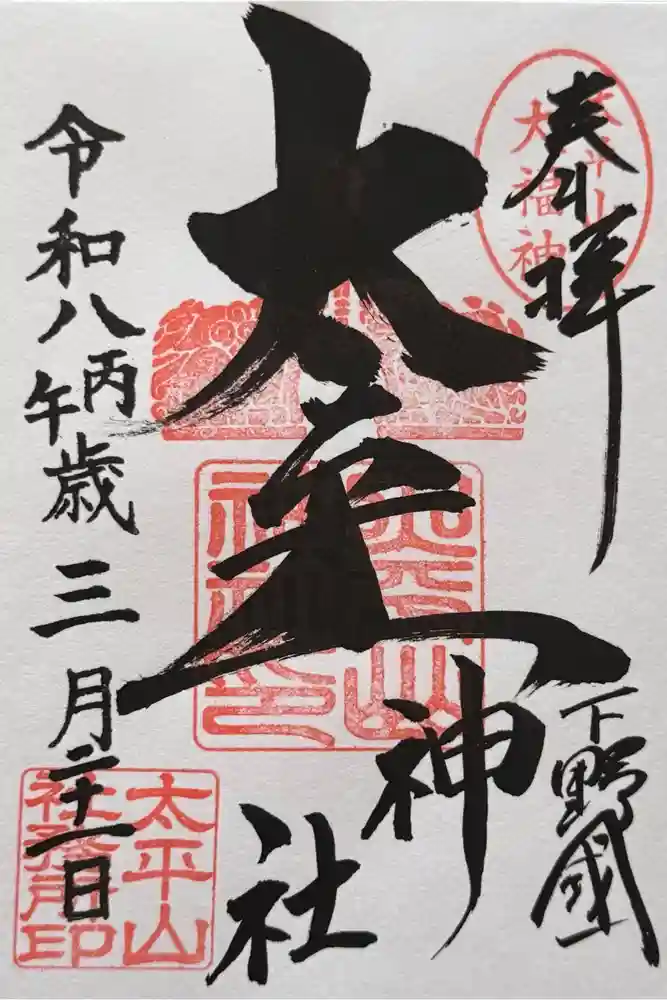 奉拝
太平山
大福神
太平山神社
太平山
神社印
下野國
令和八丙午歳三月二十一日
太平山
社務所印